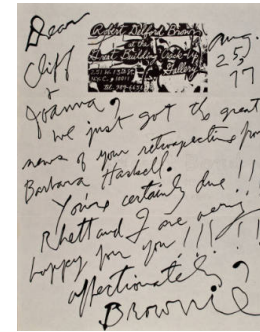 Dear
Cliff
&
Joanna,
Robert Delford Brown
at the
Great Building Crack-Up
Gallery
251 W. 13th ST.
N.Y.C. 10011
Aug.
25,
77
We just got the great
news of your retrospective from
Barbara Haskell.
You're certainly due!!
Rhett and I are very
happy for you!!!!!
affectionately,
Brownie